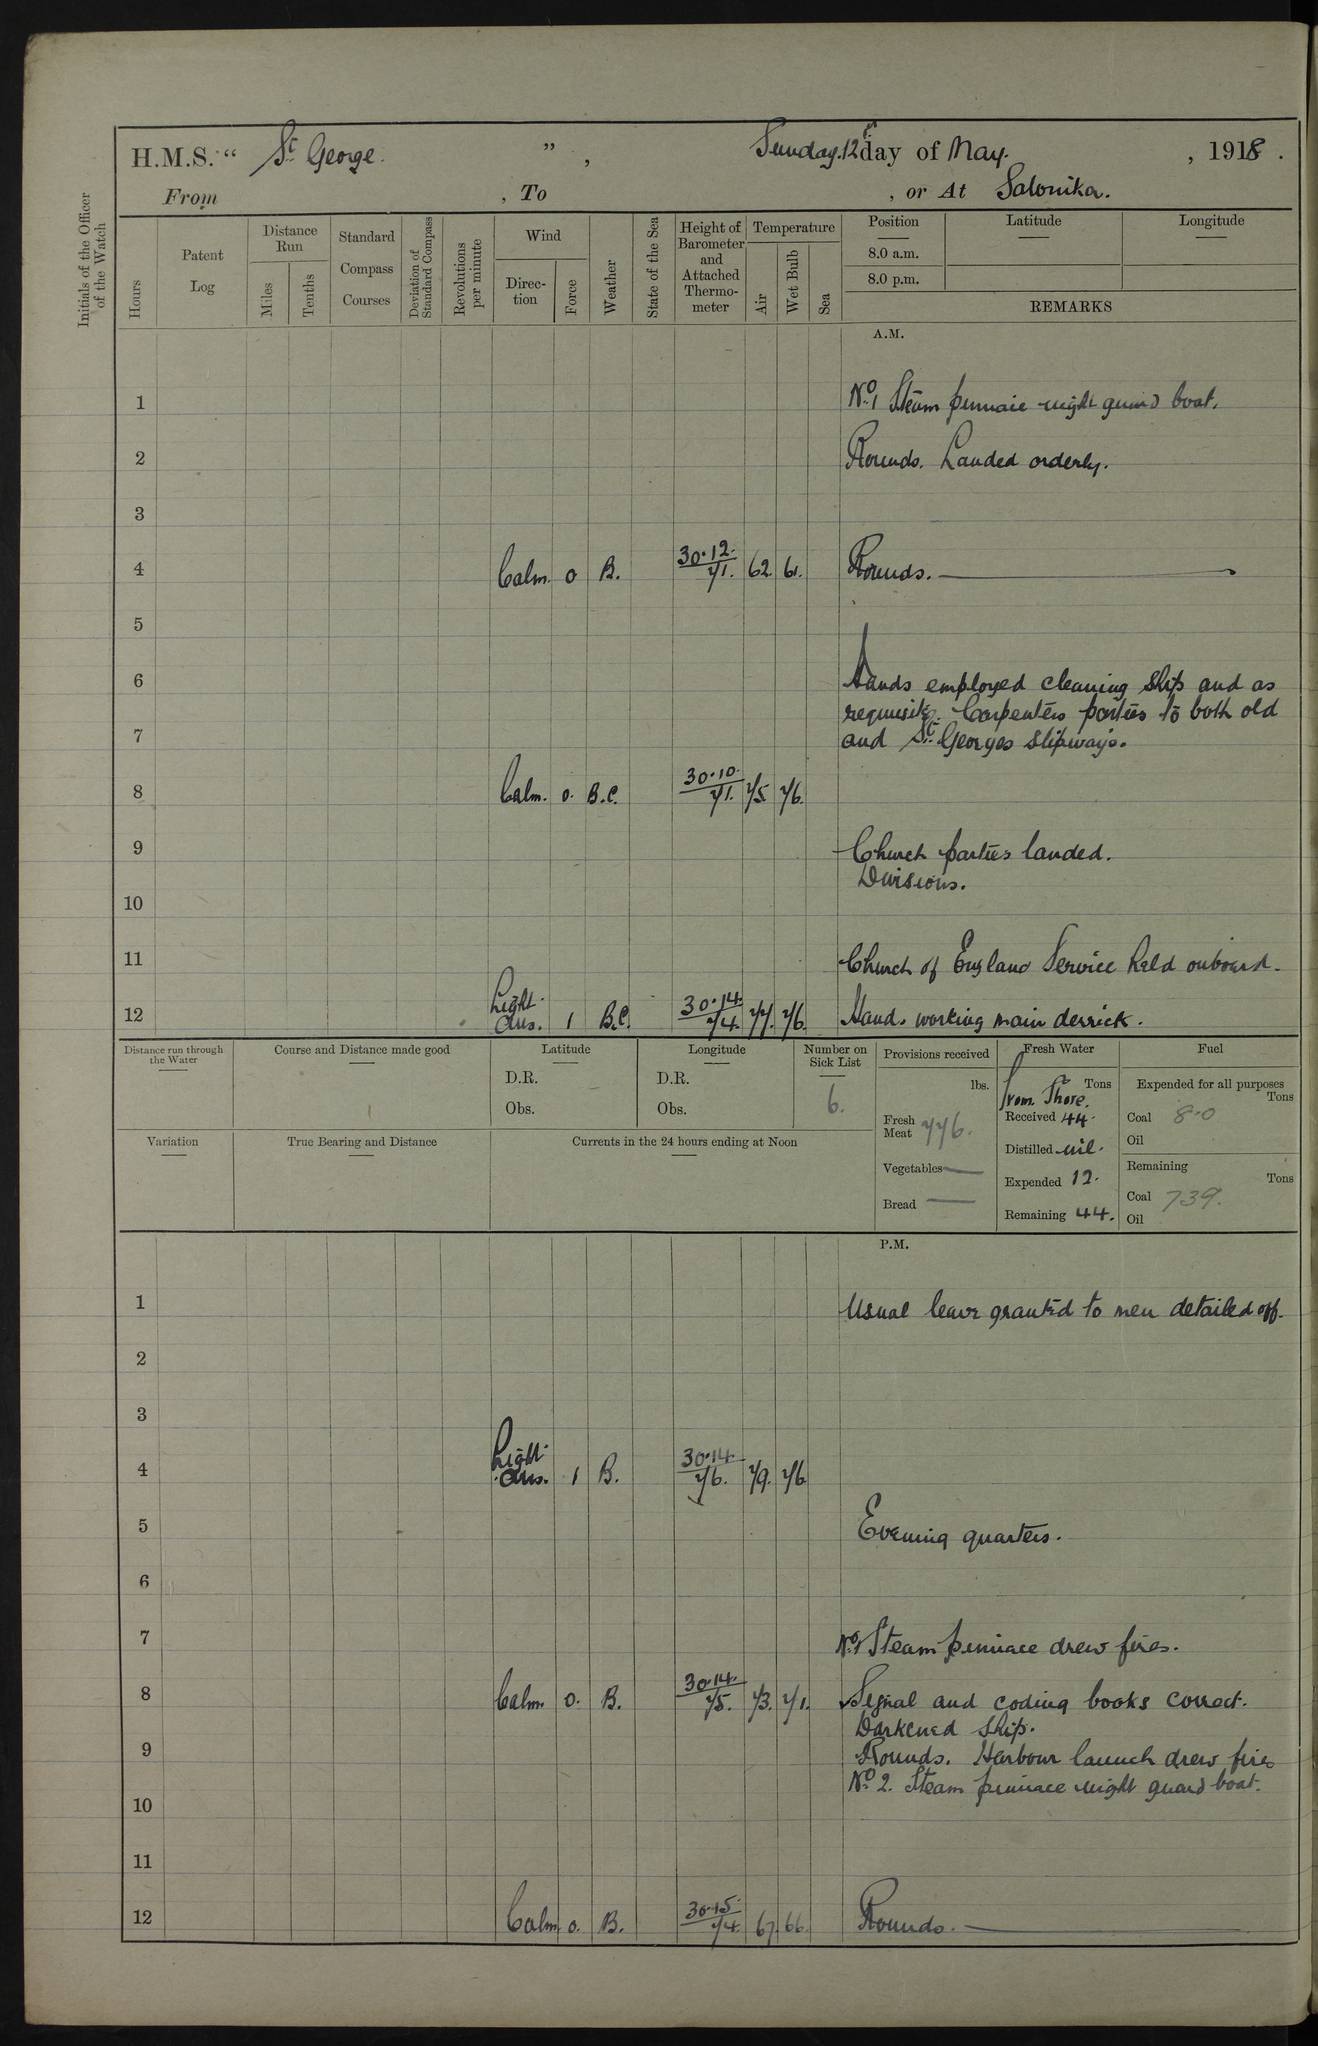 H.M.S. “ St George. ” , Sunday. 12th day of May. , 1918.
From , To , or At Salonika.
Initials of the Officer of the Watch
Hours
Patent Log
Distance Run
Miles
Tenths
Standard Compass Courses
Deviation of Standard Compass
Revolutions per minute
Wind
Direction
Force
Weather
State of the Sea
Height of Barometer and Attached Thermometer
Temperature
Air
Wet Bulb
Sea
Position Latitude Longitude
8.0 a.m.
8.0 p.m.
REMARKS
A.M.
1 No. 1 Steam pinnace night guard boat.
2 Rounds. Landed orderly.
3
4 Calm. 0 B. 30.12. 71. 62. 61. Rounds.
5
6 Hands employed cleaning ship and as
requisite. Carpenters parties to both old
7 and St Georges slipways.
8 Calm. 0. B.C. 30.10. 71. 75. 76.
9 Church parties landed.
Divisions.
10
11 Church of England Service held onboard.
12 Light airs. 1 B.C. 30.14. 74. 77. 76. Hands working main derrick.
Distance run through the Water
Course and Distance made good
Latitude
D.R.
Obs.
Longitude
D.R.
Obs.
Number on Sick List
6.
Provisions received
lbs.
Fresh Meat 776.
Vegetables —
Bread —
Fresh Water
Tons
From Shore.
Received 44.
Distilled nil.
Expended 12.
Remaining 44.
Fuel
Expended for all purposes
Tons
Coal 8.0
Oil
Remaining
Tons
Coal 739.
Oil
Variation
True Bearing and Distance
Currents in the 24 hours ending at Noon
P.M.
1 Usual leave granted to men detailed off.
2
3
4 Light airs. 1 B. 30.14. 76. 79. 76.
5 Evening quarters.
6
7 No. 1 Steam pinnace drew fires.
8 Calm. 0. B. 30.14. 75. 73. 71. Signal and coding books correct.
Darkened ship.
9 Rounds. Harbour launch drew fires
No. 2. Steam pinnace night guard boat.
10
11
12 Calm. 0. B. 30.15. 74. 67. 66. Rounds.